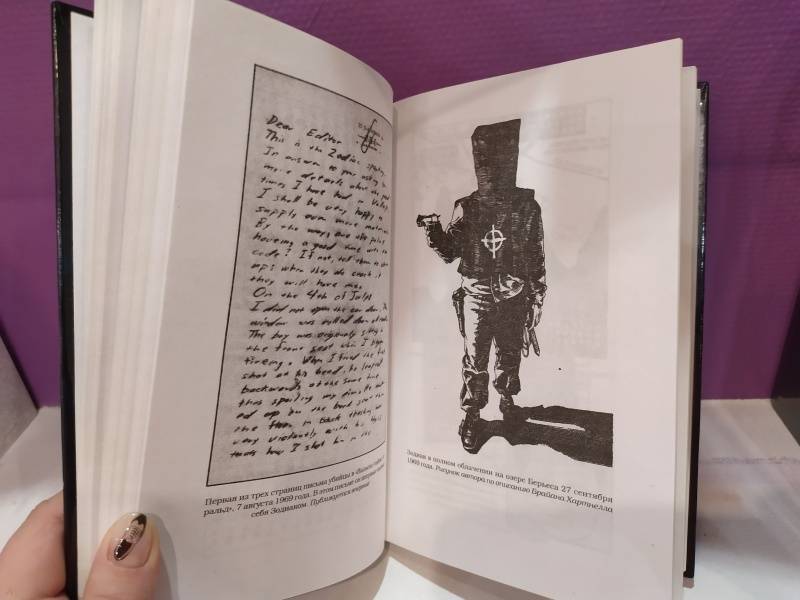 Dear Editor
This is the Zodiac speaking.
In answer to your asking for
more details about the good
times I have had in Vallejo,
I shall be very happy to
supply even more material.
By the way, are the police
haveing a good time with the
code? If not, tell them to cheer
up; when they do crack it
they will have me.
On the 4th of July:
I did not open the car door, The
window was rolled down all ready.
The boy was origionaly sitting in
the front seat when I began
fireing. When I fired the first
shot at his head, he leaped
backwards at the same time
thus spoiling my aim. He end
ed up on the back seat then
the floor in back thashing out
very violently with his legs;
thats how I shot him in the
Первая из трех страниц письма убийцы в
ральд», 7 августа 1969 года. В этом письме он впервые назвал
себя Зодиаком. Публикуется впервые
Зодиак в полном облачении на озере Берьеса 27 сентября
1969 года. Рисунок автора по описанию Брайана Хартнелла